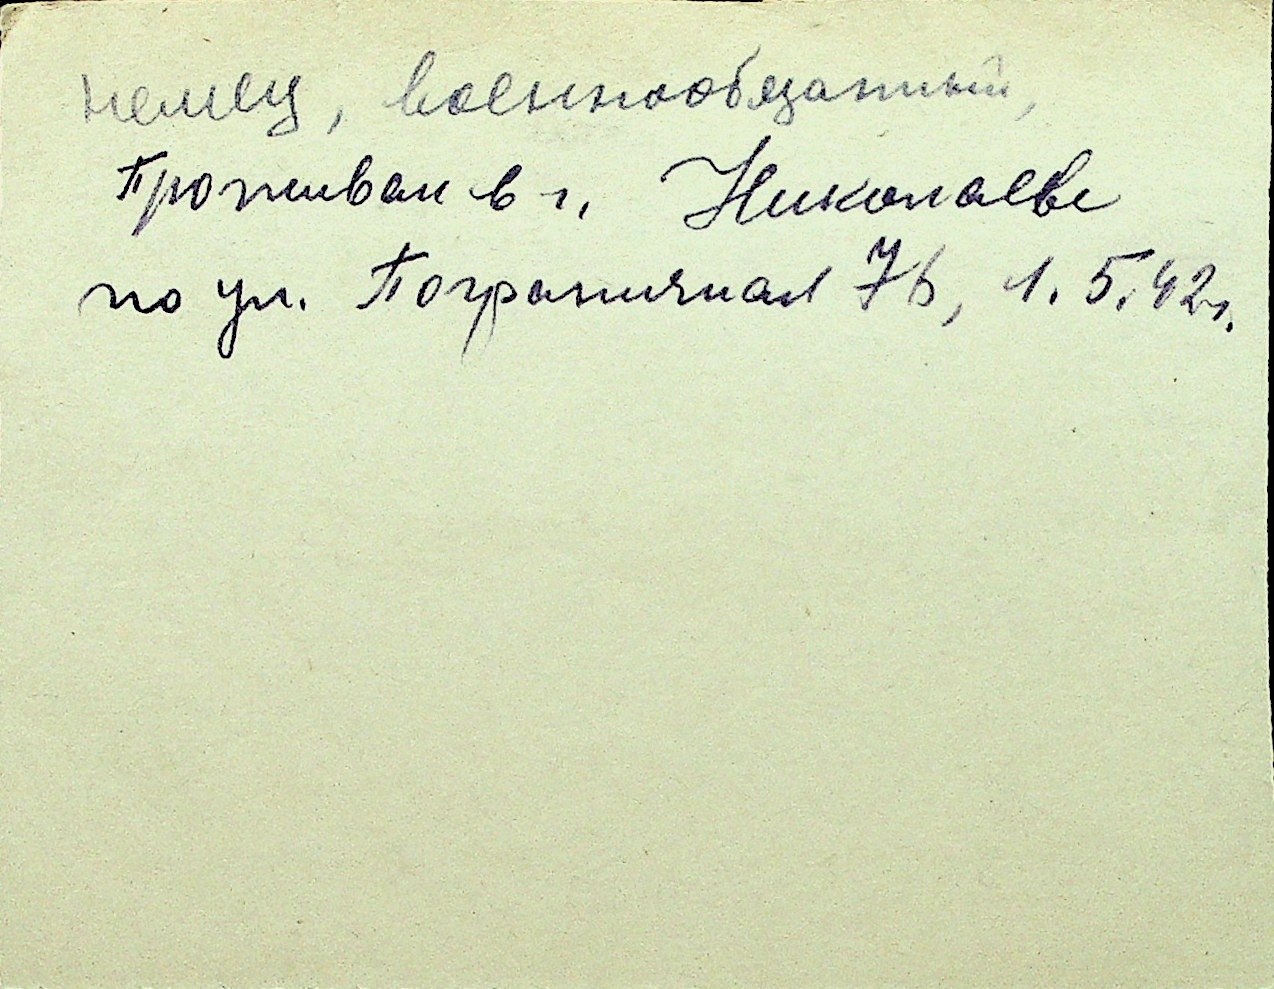 немец, военнообязанный,
Проживал в г. Николаеве
по ул. Пограничная 76, 1.5.42г.